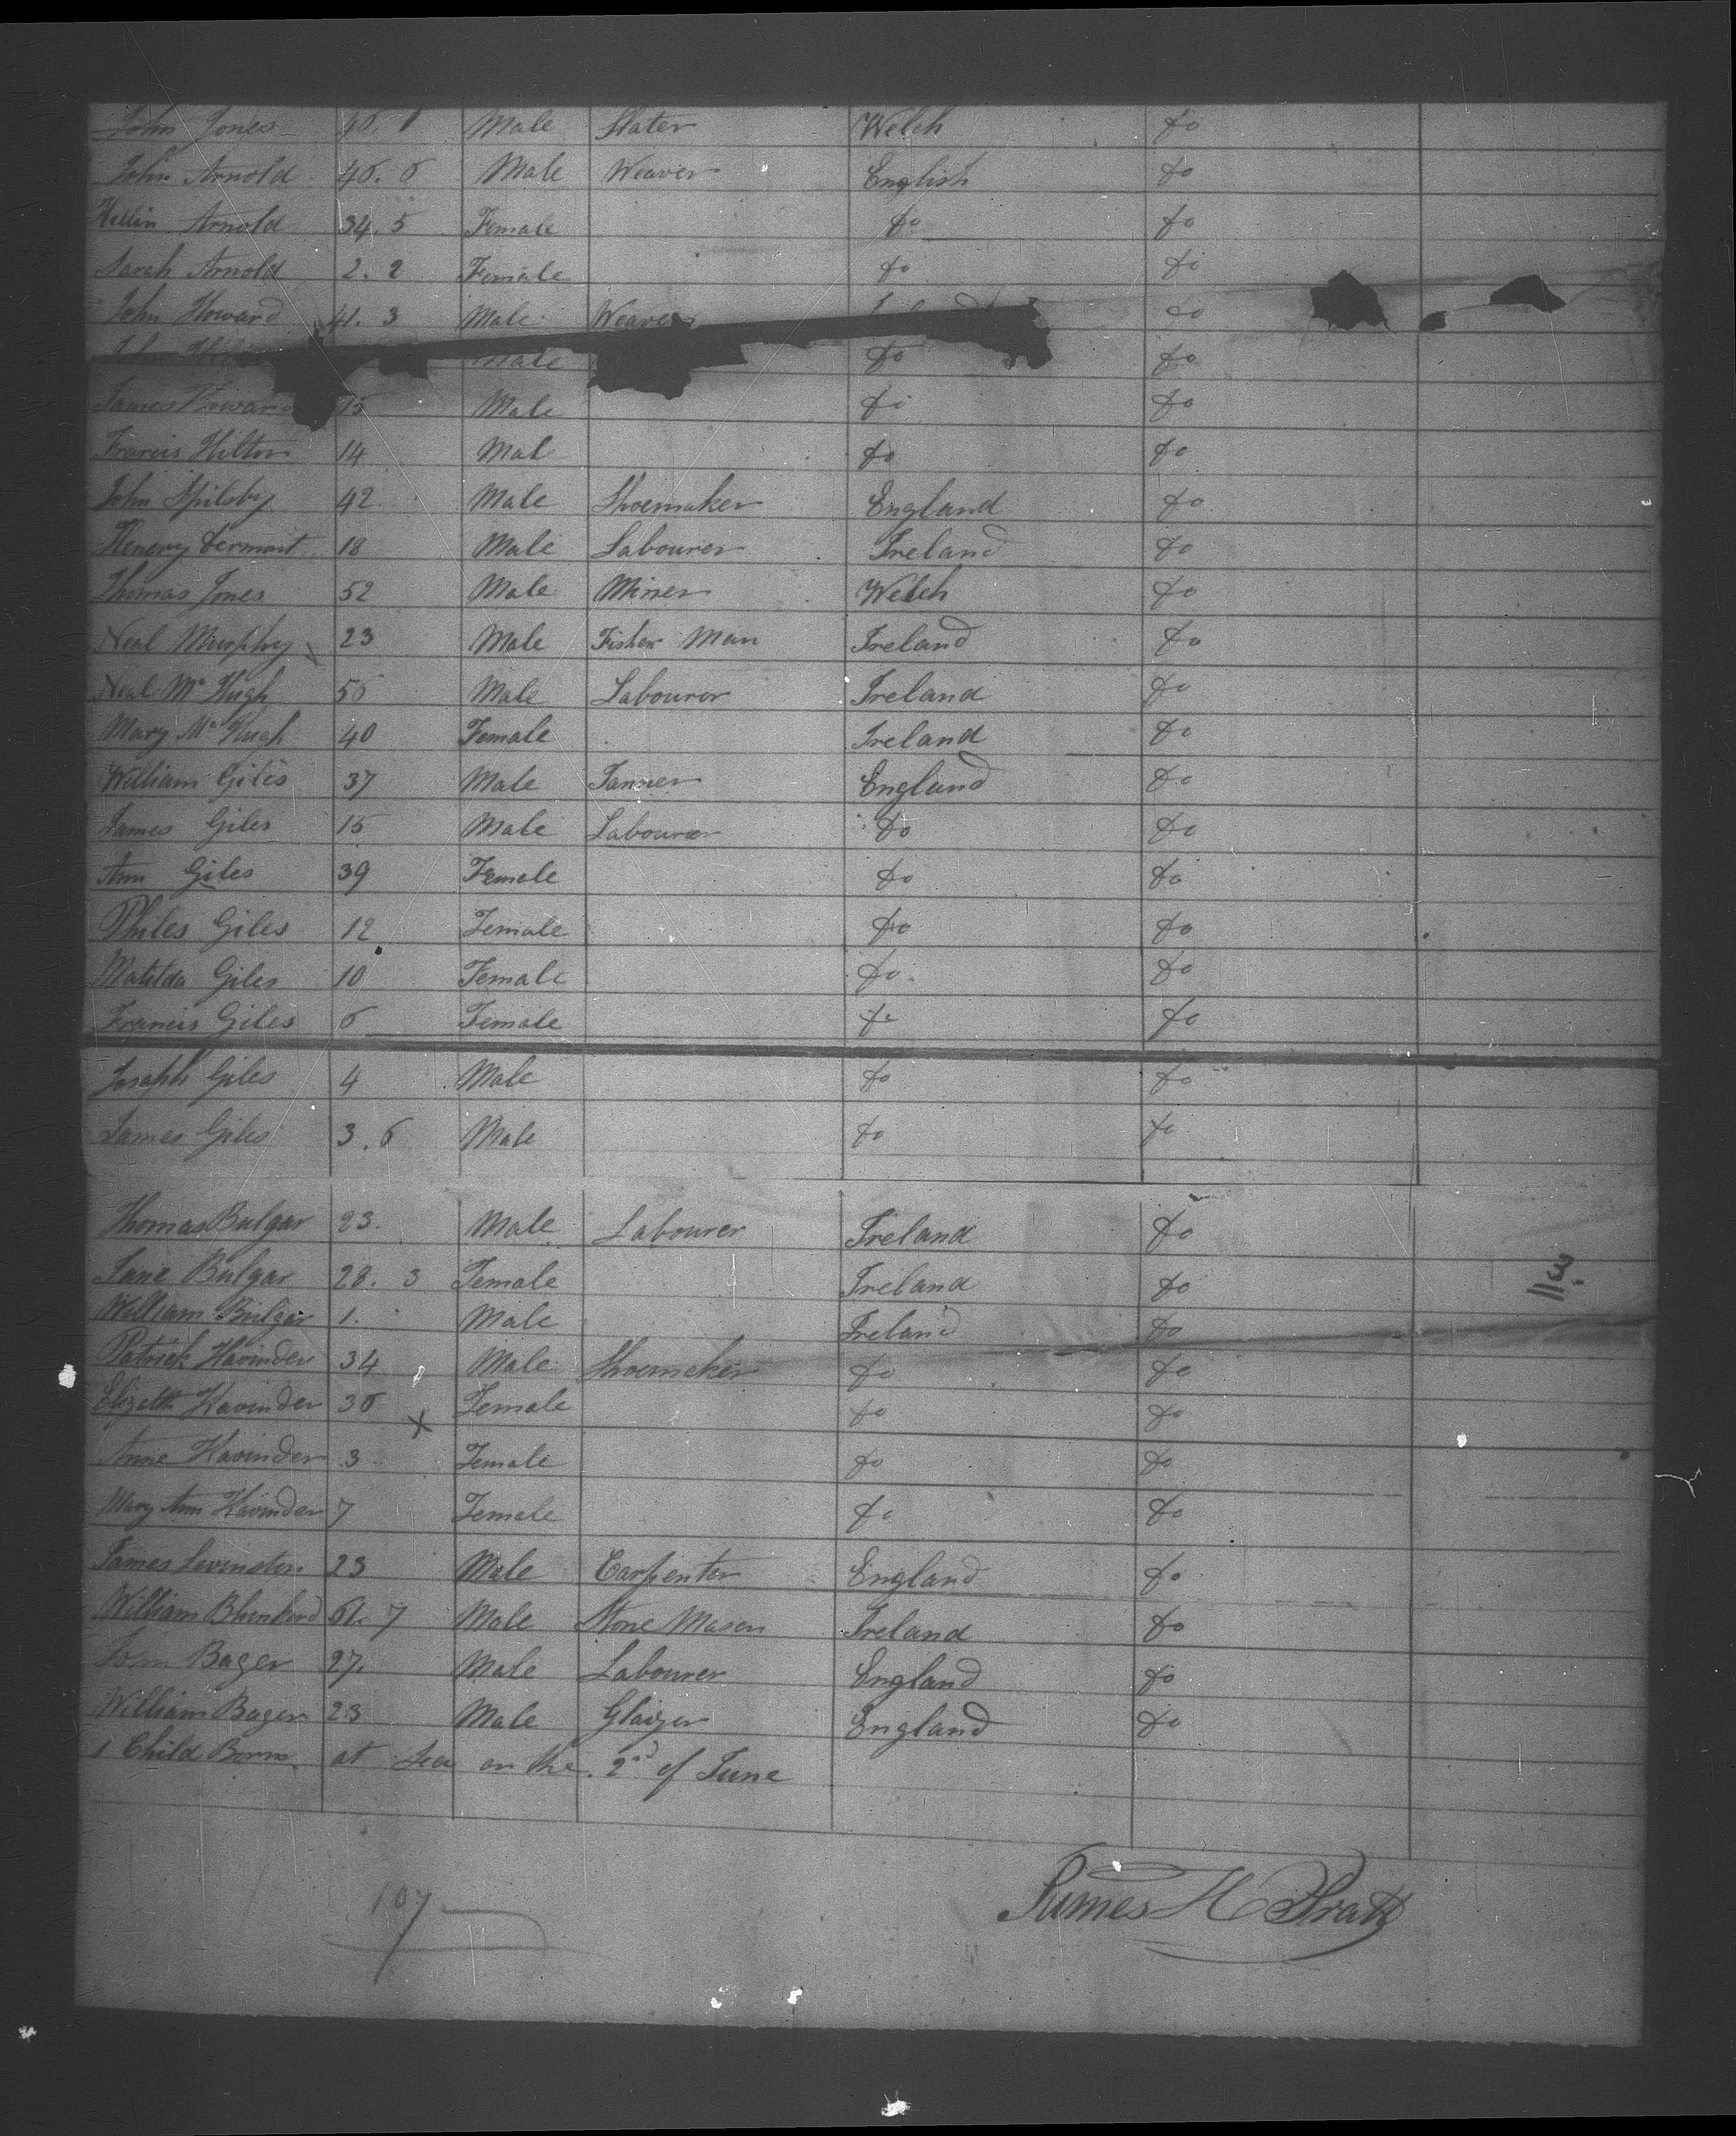 John Jones 46. 1 Male Slater Welch do
John Arnold 46. 6 Male Weaver English do
Hellin Arnold 34. 5 Female do do
Sarah Arnold 2. 2 Female do do
John Howard 41. 3 Male Weaver do
John Male do do
James Howard 15 Male do do
Francis Hilton 14 Mal do do
John Spilsby 42 Male Shoemaker England do
Henery 18 Male Labourer Ireland do
Thomas Jones 52 Male Miner Welch do
Neal Murphey 23 Male Fisher Man Ireland do
Neal Mc Hugh 50 Male Labourer Ireland do
Mary Mc Hugh 40 Female Ireland do
William Giles 37 Male Tanner England do
James Giles 15 Male Labourer do do
Ann Giles 39 Female do do
Philes Giles 12 Female do do
Matilda Giles 10 Female do do
Francis Giles 6 Female do do
Joseph Giles 4 Male do do
James Giles 3. 6 Male do do
Thomas Bulgar 23. Male Labourer Ireland do
Jane Bulgar 28. 3 Female Ireland do
William Bulgar 1. Male Ireland do
Patrick Havinder 34 Male Shoemaker do do
Elizath Havinder 36 Female do do
X
Anne Havinder 3 Female do do
Mary Ann Havinder 7 Female do do
James Levinston 23 Male Carpenter England do
William 61. 7 Male Stone Mason Ireland do
John Bager 27. Male Labourer England do
William Bager 23 Male Glaizer England do
1 Child Born at Sea on the 2nd of June
James H Pratt
107